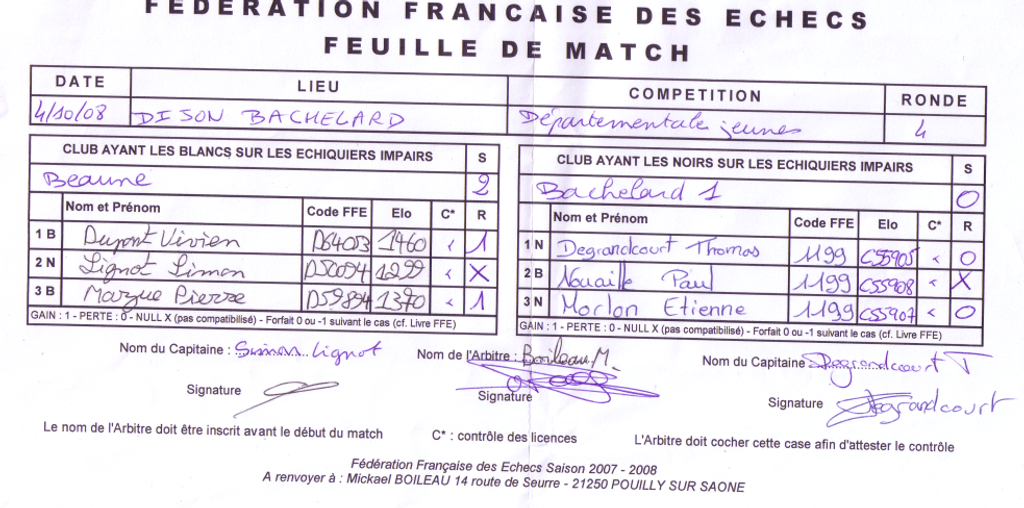 FEDERATION FRANCAISE DES ECHECS
FEUILLE DE MATCH
DATE LIEU COMPETITION RONDE
4/10/08 DISON BACHELARD Départementale jeunes 4
CLUB AYANT LES BLANCS SUR LES ECHIQUIERS IMPAIRS S CLUB AYANT LES NOIRS SUR LES ECHIQUIERS IMPAIRS S
Beaune 2 Bachelard 1 0
Nom et Prénom Code FFE Elo C* R Nom et Prénom Code FFE Elo C* R
1 B Dupont Vivien D64003 1460 1 1 N Degrandcourt Thomas 1199 C55905 0
2 N Lignot Simon 1299 X 2 B Nouaille Paul 1199 C55908 X
3 B Marque Pierre D59894 1370 1 3 N Morlon Etienne 1199 C55907 0
GAIN : 1 - PERTE : 0 - NULL X (pas compatibilisé) - Forfait 0 ou -1 suivant le cas (cf. Livre FFE) GAIN : 1 - PERTE : 0 - NULL X (pas compatibilisé) - Forfait 0 ou -1 suivant le cas (cf. Livre FFE)
Nom du Capitaine : Simon Lignot Nom de l'Arbitre : Boileau M. Nom du Capitaine Degrandcourt T
Signature Signature Signature Degrandcourt
Le nom de l'Arbitre doit être inscrit avant le début du match C* : contrôle des licences L'Arbitre doit cocher cette case afin d'attester le contrôle
Fédération Française des Echecs Saison 2007 - 2008
A renvoyer à : Mickael BOILEAU 14 route de Seurre - 21250 POUILLY SUR SAONE